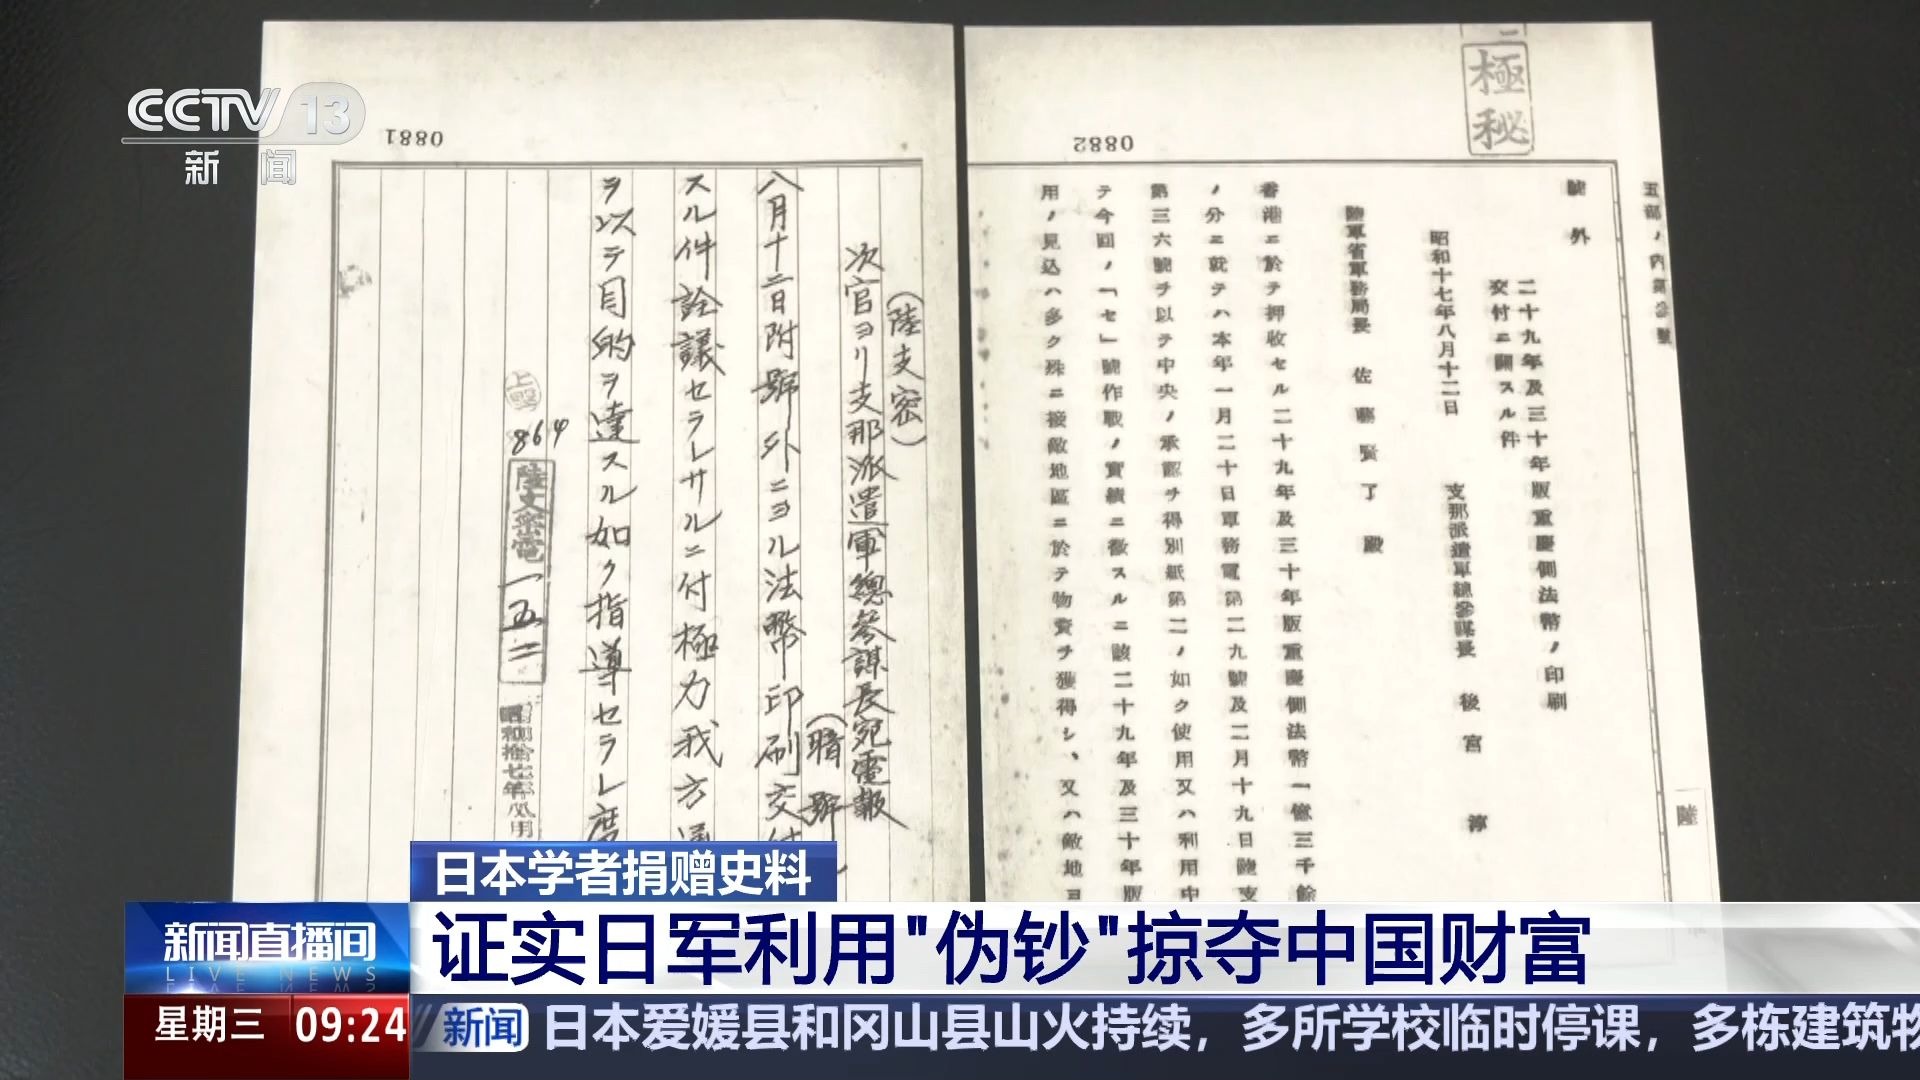 CCTV 13
新闻
0882
極秘
五部ノ内第
號外
二十九年及三十年版重慶側法幣ノ印刷
交付ニ關スル件
昭和十七年八月十二日
支那派遣軍總參謀長 後宮 淳
陸軍省軍務局長 佐藤賢了 殿
香港ニ於テ押收セル二十九年及三十年版重慶側法幣一億三千餘
ノ分ニ就テハ本年一月二十日軍務電第二九號及二月十九日陸支
第三六號ヲ以テ中央ノ承認ヲ得別紙第二ノ如ク使用又ハ利用中
テ今回ノ「セ」號作戰ノ實績ニ徵スルニ該二十九年及三十年版
用ノ見込ハ多ク殊ニ接敵地區ニ於テ物資ヲ獲得シ、又ハ敵地ヨ
陸
0881
(陸支密)
次官ヨリ支那派遣軍總參謀長宛電報
(暗號)
八月十二日附號外ニヨル法幣印刷交付
スル件詮議セラレサルニ付極力我方通
ヲ以テ目的ヲ達スル如ク指導セラレ度
864
陸支密電一五二
日本学者捐赠史料
证实日军利用"伪钞"掠夺中国财富
新闻直播间
LIVE NEWS
星期三 09:24
新闻 日本爱媛县和冈山县山火持续，多所学校临时停课，多栋建筑物